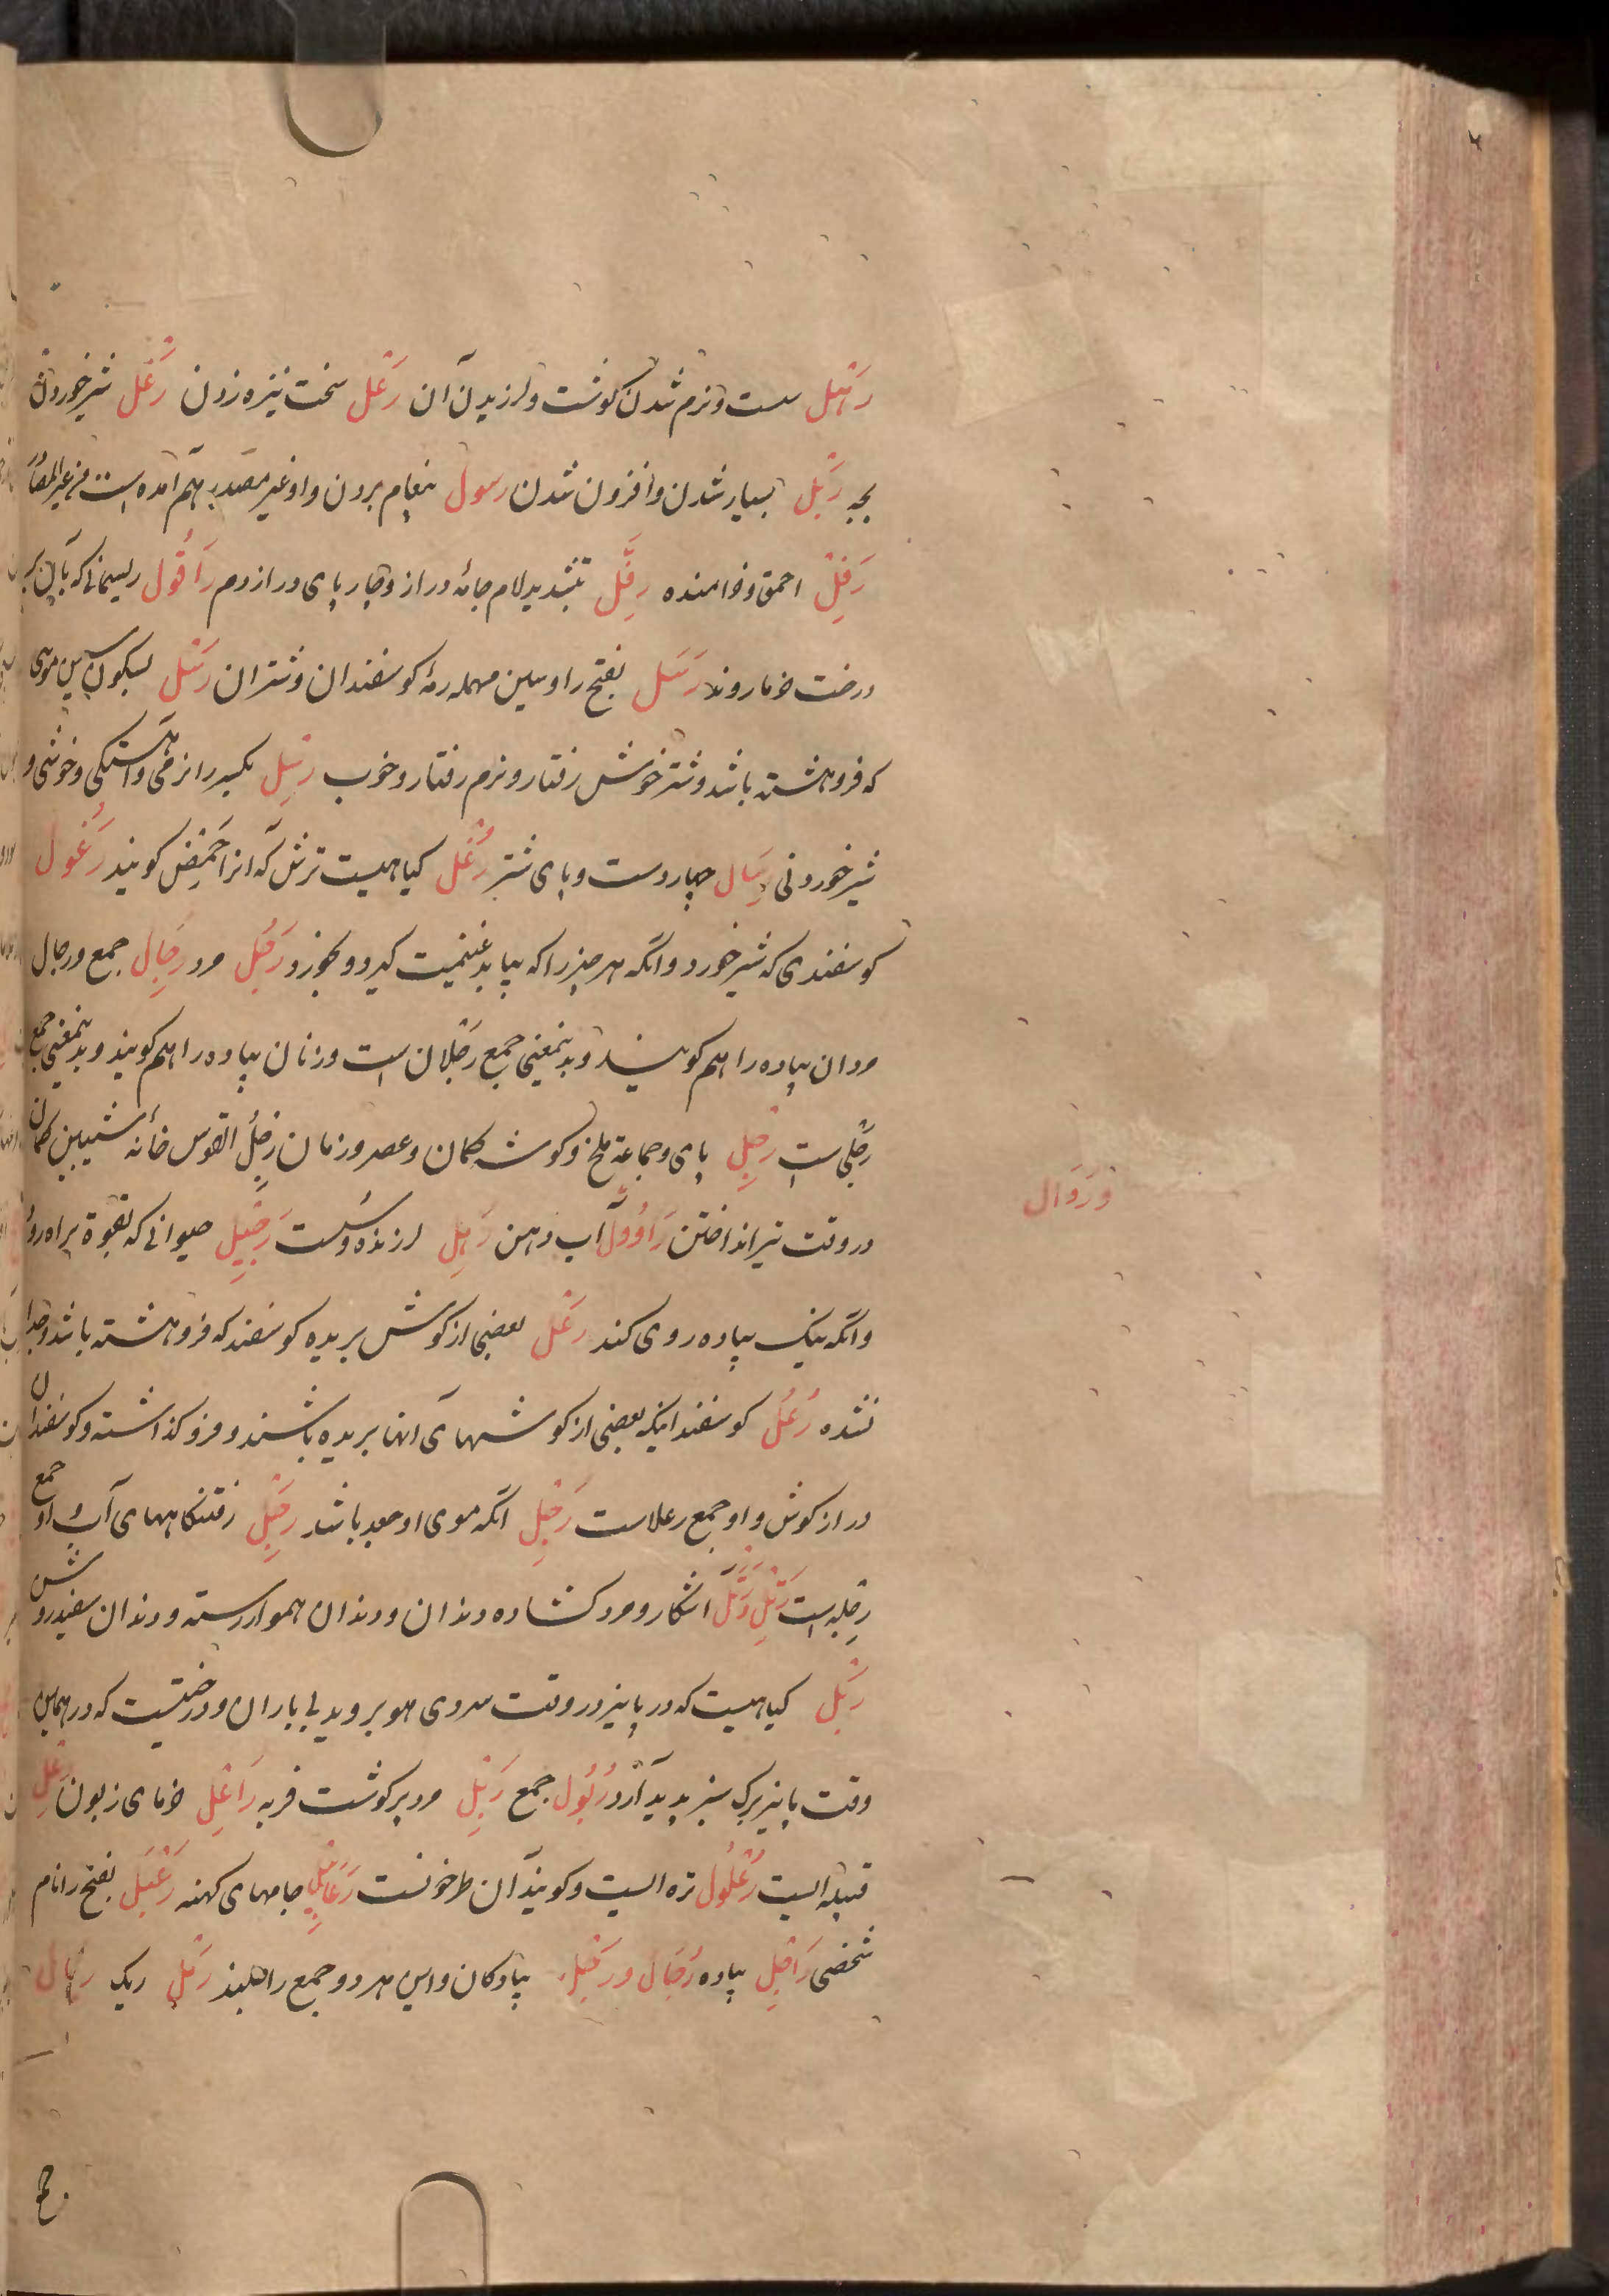 رَهَل سست و نرم شدن کوشت و لرزیدن آن رَعْل سخت نیزه زدن رَغْل شیر خوردن
بچه رَبْل بسیار شدن و افزون شدن رسول پیغام بردن و او غیر مصدر هم آمده است
رَفِل احمق و خرامنده رِفَلّ بتشدید لام جامهٔ دراز و چارپای دراز دم رَاقُول ریسمانی که بآن بر
درخت خرما روند رَسَل بفتح را و سین مهمله رمهٔ کوسفندان و شتران رَسْل بسکون سین موی
که فروهشته باشد و شتر خوش رفتار و نرم رفتار و خوب رِسْل بکسر را نرمی و آهستکی و خوشی و
شیر خوردنی رِسَال چهار دست و پای شتر رُغْل کیاهیست ترش که آنرا حَمِیض کویند رَغُول
کوسفندی که شیر خورد و آنکه هر چیز را که بیابد غنیمت کیرد و بخورد رَجُل مرد رِجَال جمع و رجال
مردان پیاده را هم کویند و بدینمعنی جمع رَجْلان است و زنان پیاده را هم کویند و بدینمعنی جمع
رَجْلی است رِجْل پای و جماعة ملخ و کوشه کمان و عصر و زمان رِجْلُ القوس خانه شیبین کمان
در وقت تیر انداختن رَاوُول آب دهن رَهِل لرزنده و سُست رَجِیل حیوانی که بقوة براه رود
و آنکه نیک پیاده روی کند رَعْل بعضی از کوش بریده کوسفند که فروهشته باشد و جدا
نشده رُعْل کوسفندانیکه بعضی از کوشهای آنها بریده باشند و فرو کذاشته و کوسفندان
دراز کوش و او جمع رعلاست رَجِل آنکه موی او جعد باشد رِجَل رفتنکاههای آب و او جمع
رِجله است رَتِل رَتَل آشکار و مرد کشاده دندان و دندان هموار رسته و دندان سفید روشن
رَبْل کیاهیست که در پاییز در وقت سردی هوا بروید بی باران و درختیست که در همین
وقت پاییز برک سبز پدید آرد رُبُول جمع رَبِل مرد پر کوشت فربه رَاعِل خرمای زبون رِعْل
قبیله ایست رُعْلُول تره ایست و کویند آن طرخونست رَعَابِل جامهای کهنه رَعْبَل بفتح را نام
شخصی رَاجِل پیاده رُجَال و رَجْل پیادکان و این هر دو جمع راجلند رَمْل ریک رِمَال
وَ رُوَال